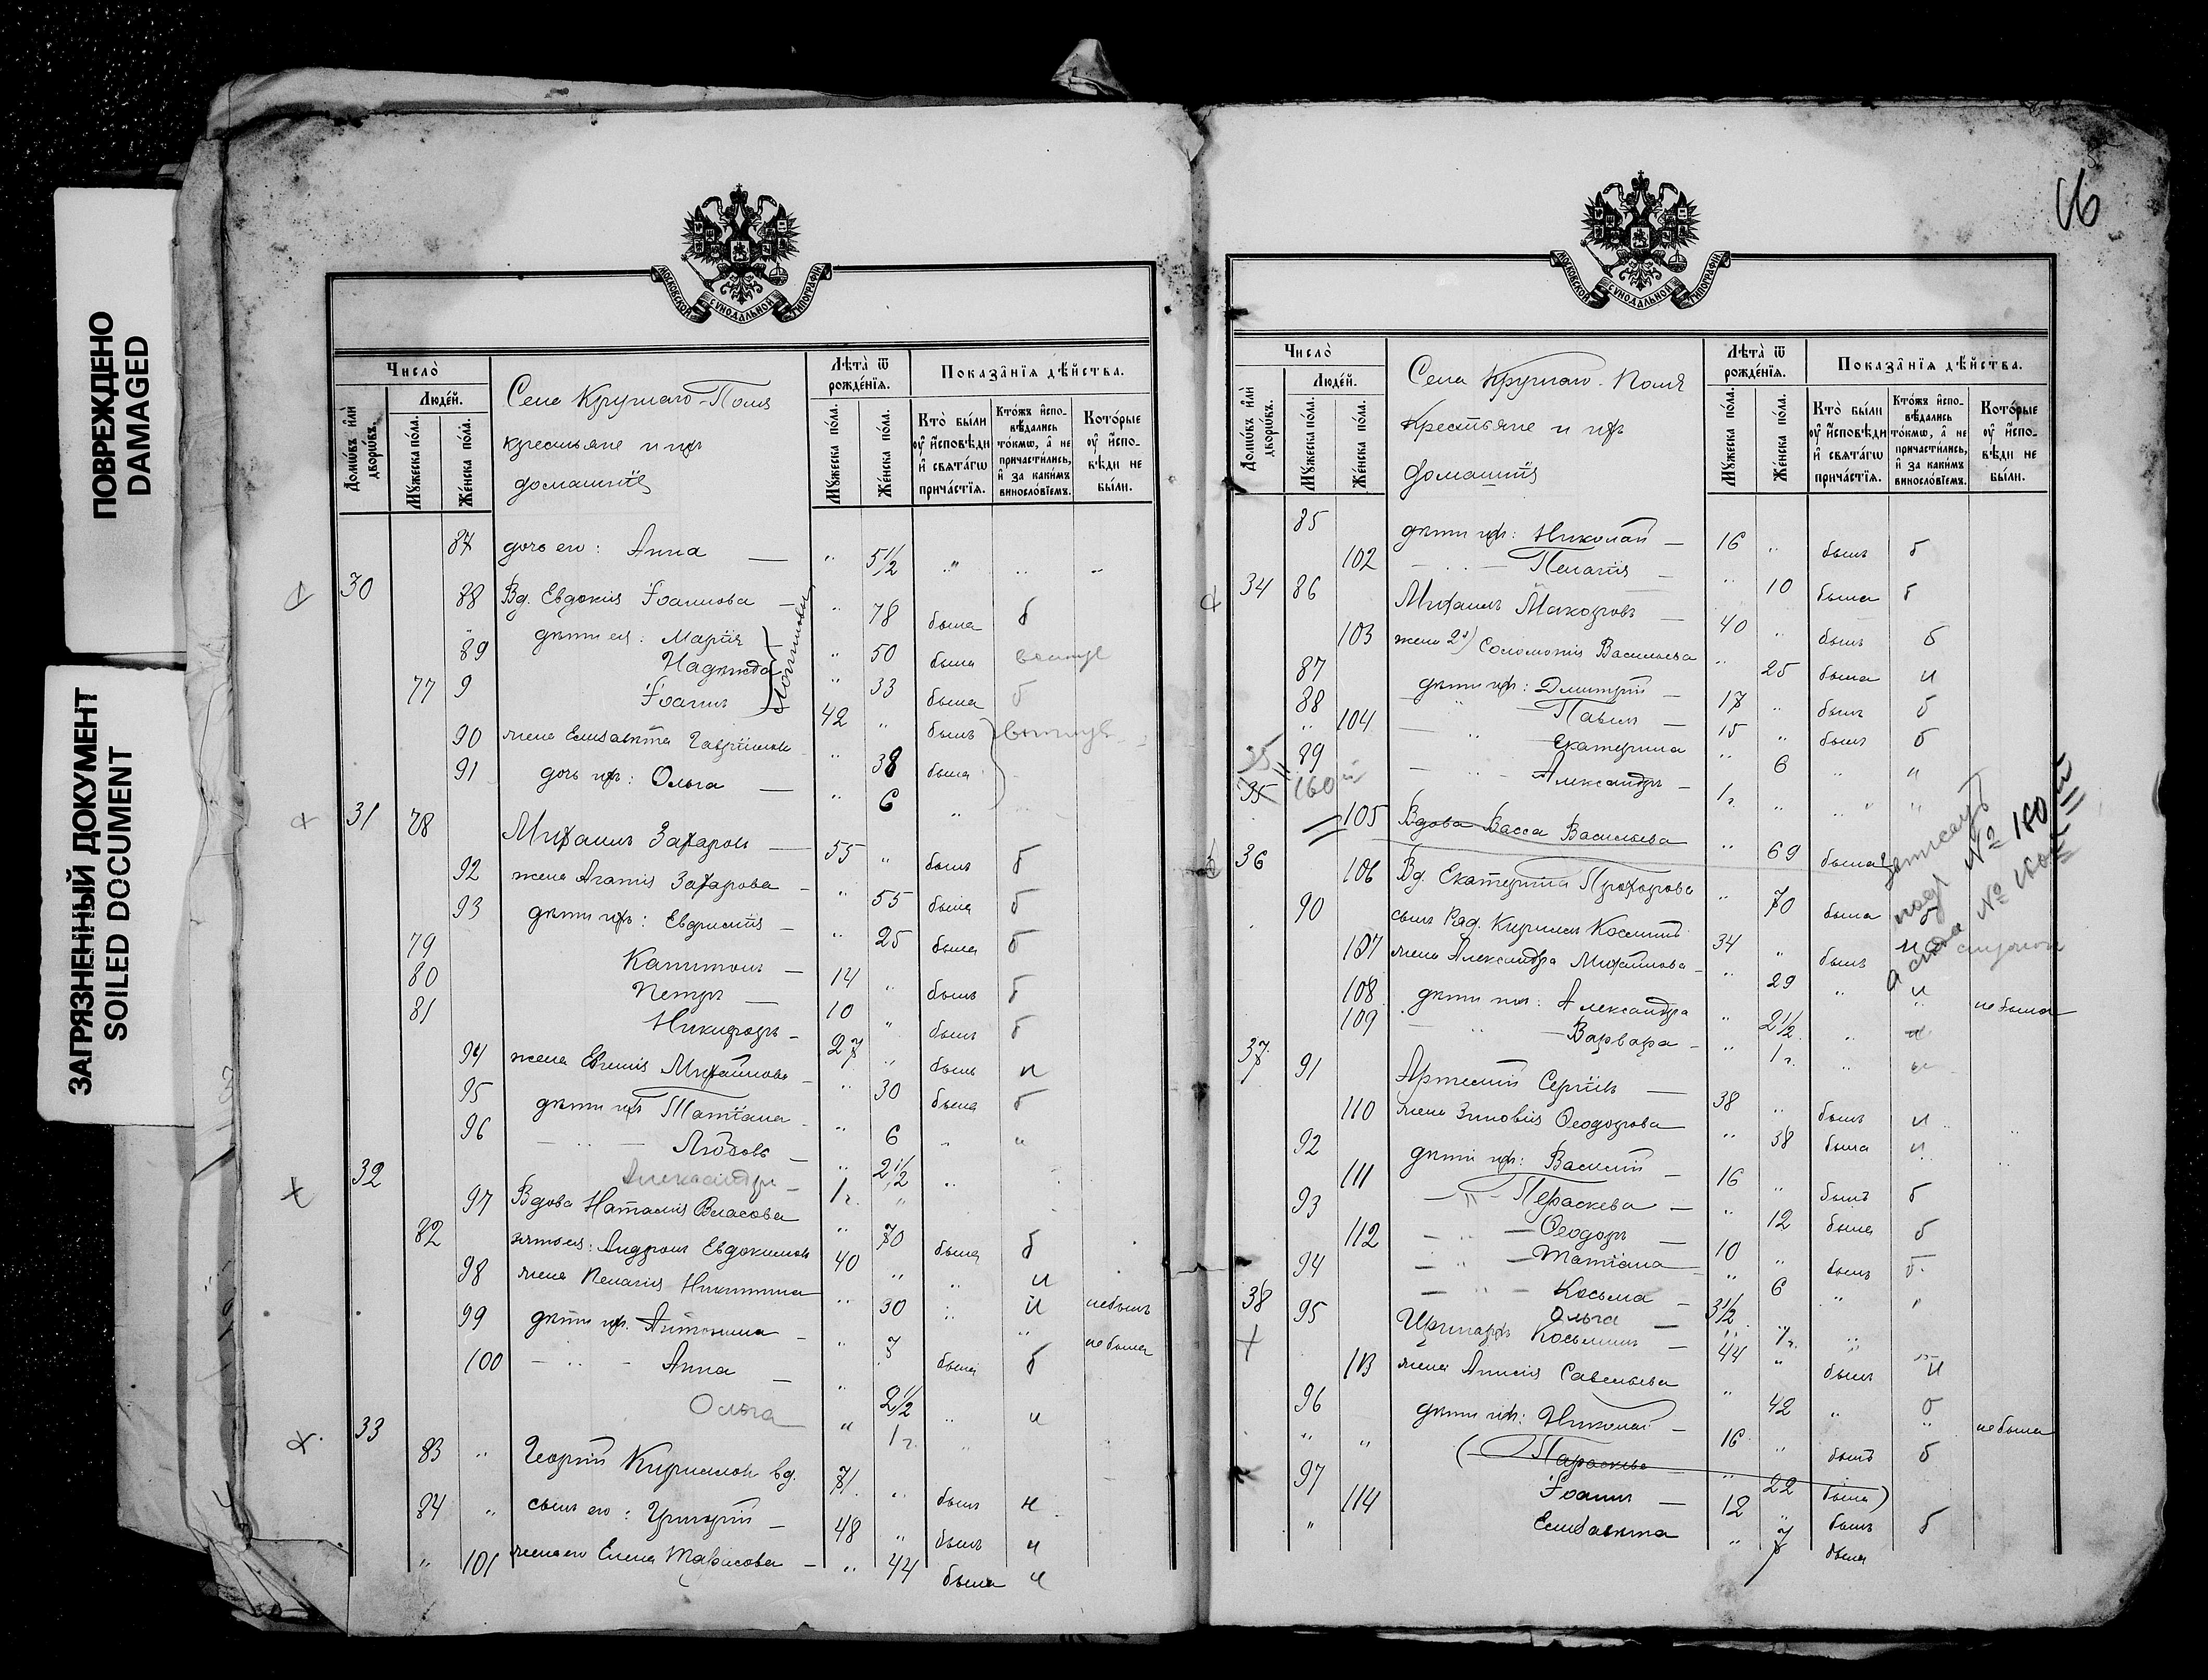 ПОВРЕЖДЕНО
DAMAGED
ЗАГРЯЗНЕННЫЙ ДОКУМЕНТ
SOILED DOCUMENT
МОСКОВСКОЙ СѴНОДАЛЬНОЙ ТИПОГРАФІИ
Число̀
Домѡ́въ и҆лѝ дворѡ́въ.
Люде́й.
Мꙋ́жеска по́ла.
Же́нска по́ла.
Села Круглаго-Поля
крестьяне и ихъ
домашніе
Лѣта̀ ѿ рожде́нїѧ.
Мꙋ́жеска по́ла.
Же́нска по́ла.
Показа̂нїѧ дѣ́йства.
Кто̀ бы́ли оу҆ и҆сповѣ́ди и҆ свѧта́гѡ прича́стїѧ.
Кто́жъ и҆спо-вѣдались то́кмѡ, а҆ не причасти́лись, и҆ за каки́мъ виносло́вїемъ.
Кото́рые оу҆ и҆спо-вѣди не бы́ли.
87 дочь его: Анна — " 5 1/2 " " "
30 88 Вд. Евдокія Іоаннова — " 78 была б
дѣти ея: Марія " 50 была
89 Надежда " 33 была б
77 9 Іоаннъ 42 " былъ
90 жена Елисавета Гавріилова " 38 была
91 дочь ихъ: Ольга — " 6 "
31 78 Михаилъ Захаровъ — 55 " былъ б
92 жена Агапія Захарова — " 55 была б
93 дѣти ихъ: — " 25 была б
79 Капитонъ — 14 " былъ б
80 Петръ — 10 " былъ б
81 Никифоръ — 27 " былъ и
94 жена Евгенія Михайлова — " 30 была б
95 дѣти ихъ Татіана — " 6 " "
96 — " — Любовь — " 2 1/2 "
Александръ — 1 г. "
32 97 Вдова Наталія Власова " 70 была б
82 зять ея: Андронъ Евдокимовъ 40 " " и не былъ
98 жена Пелагія Никитина " 30 " и не была
99 дѣти ихъ: Антонина — " 7 была б
100 — " — Анна — " 2 1/2 " и
Ольга " 1 г. "
33 83 " Георгій Кирилловъ вд. 71 " былъ и
84 " сынъ его: Григорій — 48 " былъ и
" 101 жена его Елена Тарасова — " 44 была и
16
МОСКОВСКОЙ СѴНОДАЛЬНОЙ ТИПОГРАФІИ
Число̀
Домѡ́въ и҆лѝ дворѡ́въ.
Люде́й.
Мꙋ́жеска по́ла.
Же́нска по́ла.
Села Круглаго-Поля
Крестьяне и ихъ
домашніе
Лѣта̀ ѿ рожде́нїѧ.
Мꙋ́жеска по́ла.
Же́нска по́ла.
Показа̂нїѧ дѣ́йства.
Кто̀ бы́ли оу҆ и҆сповѣ́ди и҆ свѧта́гѡ прича́стїѧ.
Кто́жъ и҆спо-вѣдались то́кмѡ, а҆ не причасти́лись, и҆ за каки́мъ виносло́вїемъ.
Кото́рые оу҆ и҆спо-вѣди не бы́ли.
85 дѣти ихъ: Николай — 16 " былъ б
102 — " — Пелагія — " 10 была б
34 86 Михаилъ — 40 " былъ б
103 жена 2я) Соломонія Васильева " 25 была и
87 дѣти ихъ: Димитрій — 17 " былъ б
88 " Павелъ — 15 " былъ б
" 104 — " — Екатерина " 6 " "
89 — " — Александръ — 1 г. " " "
35 160й
35 105 Вдова Васса Васильева " 69 была
записать подъ № 160й
№ 160
36 106 Вд. Екатерина Прохорова " 70 была
90 сынъ Ряд. Кириллъ Косминъ 34 " былъ
107 жена Александра Михайлова — " 29 " и не была
108 дѣти ихъ: Александра " 2 1/2 "
109 — " — Варвара — " 1 г. " и
37 91 Артемій Сергіевъ — 38 " былъ и
110 жена Зиновія Ѳеодорова " 38 была и
92 дѣти ихъ: Василій — 16 " былъ б
111 — " — Параскева — " 12 была б
93 — Ѳеодоръ — 10 " былъ б
112 — " — Татіана " 6 " "
94 — " — Косьма — 3 1/2 " "
Ольга — " 1 г. "
38 95 Косьминъ — 44 " былъ и
113 жена Анисія Савельева " 42 " б не была
96 дѣти ихъ: Николай — 16 " былъ б
" " (Параскева — " 22 была)
97 Іоаннъ — 12 " былъ б
" 114 Елисавета " 7 была